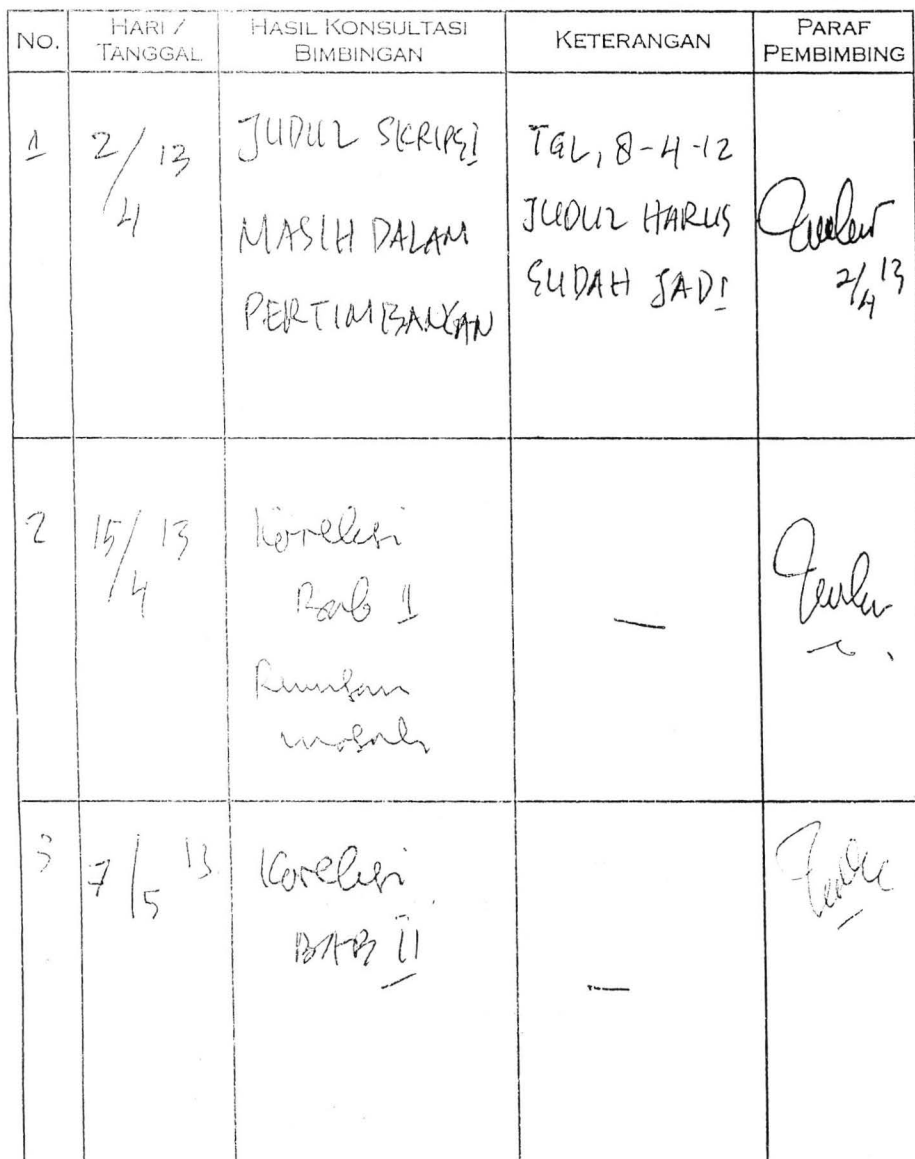 NO.
HARI /
TANGGAL
HASIL KONSULTASI
BIMBINGAN
KETERANGAN
PARAF
PEMBIMBING
1
2/4 13
JUDUL SKRIPSI
MASIH DALAM
PERTIMBANGAN
TGL, 8-4-12
JUDUL HARUS
SUDAH JADI
2/4 13
2
15/4 13
Koreksi
Bab I
Rumusan
masalah
—
3
7/5 13
Koreksi
BAB II
—